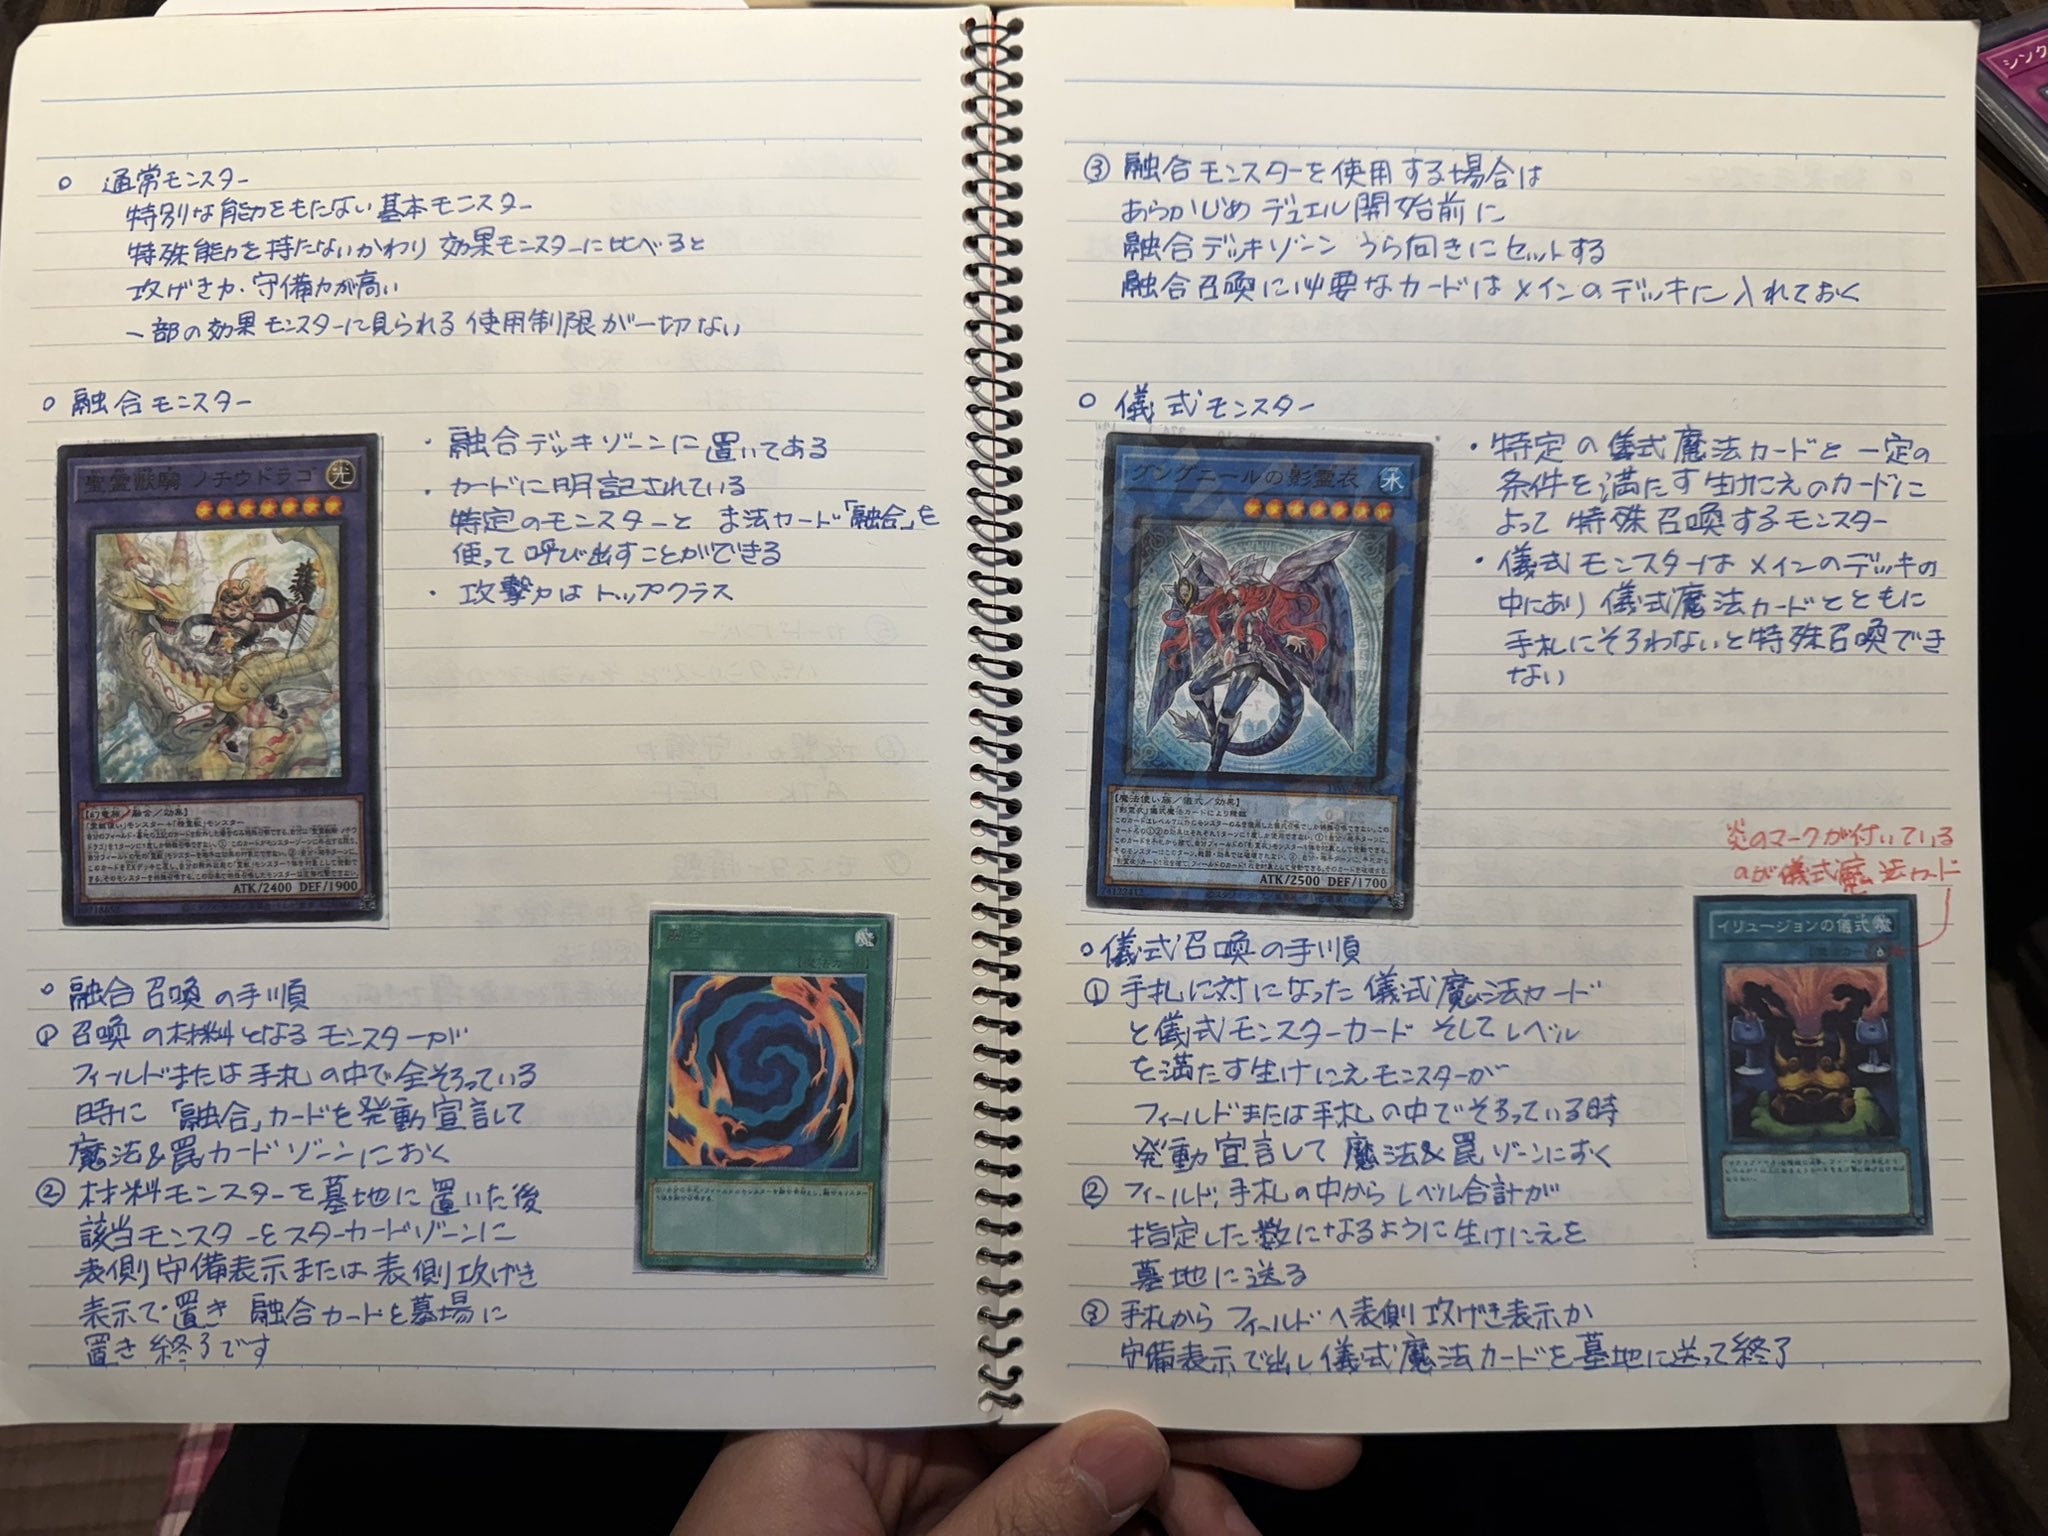 ○ 通常モンスター
特別な能力をもたない基本モンスター
特殊能力を持たないかわり 効果モンスターに比べると
攻げき力・守備力が高い
一部の効果モンスターに見られる使用制限が一切ない
○ 融合モンスター
聖霊獣騎 ノチウドラゴ 光
・融合デッキゾーンに置いてある
・カードに明記されている
特定のモンスターと ま法カード「融合」を
使って呼び出すことができる
・攻撃力はトップクラス
【幻竜族/融合/効果】
「霊獣使い」モンスター+「精霊獣」モンスター
ATK/2400 DEF/1900
融合
○ 融合召喚の手順
① 召喚の材料となるモンスターが
フィールドまたは手札の中で全そろっている
時に「融合」カードを発動宣言して
魔法&罠カードゾーンにおく
② 材料モンスターを墓地に置いた後
該当モンスターをスターカードゾーンに
表側守備表示または表側攻げき
表示で置き 融合カードを墓場に
置き終了です
③ 融合モンスターを使用する場合は
あらかじめデュエル開始前に
融合デッキゾーン うら向きにセットする
融合召喚に必要なカードはメインのデッキに入れておく
○ 儀式モンスター
グングニールの影霊衣 水
・特定の儀式魔法カードと一定の
条件を満たす生けにえのカードに
よって特殊召喚するモンスター
・儀式モンスターはメインのデッキの
中にあり儀式魔法カードとともに
手札にそろわないと特殊召喚でき
ない
【魔法使い族/儀式/効果】
「影霊衣」儀式魔法カードにより降臨
ATK/2500 DEF/1700
炎のマークが付いている
のが儀式魔法カード
イリュージョンの儀式 魔
○ 儀式召喚の手順
① 手札に対になった儀式魔法カード
と儀式モンスターカード そしてレベル
を満たす生けにえモンスターが
フィールドまたは手札の中でそろっている時
発動宣言して魔法&罠ゾーンにおく
② フィールド、手札の中からレベル合計が
指定した数になるように生けにえを
墓地に送る
③ 手札からフィールドへ表側攻げき表示か
守備表示で出し儀式魔法カードを墓地に送って終了
シンク